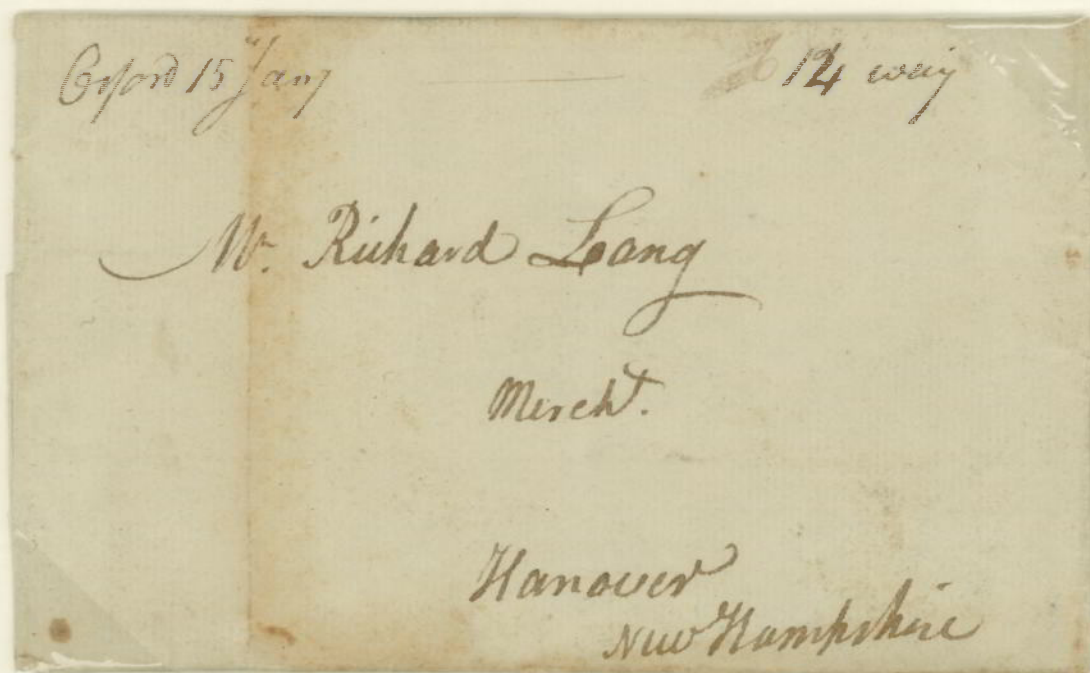 Orford 15th Jany 12½ way
Mr. Richard Lang
Mercht.
Hanover
New Hampshire